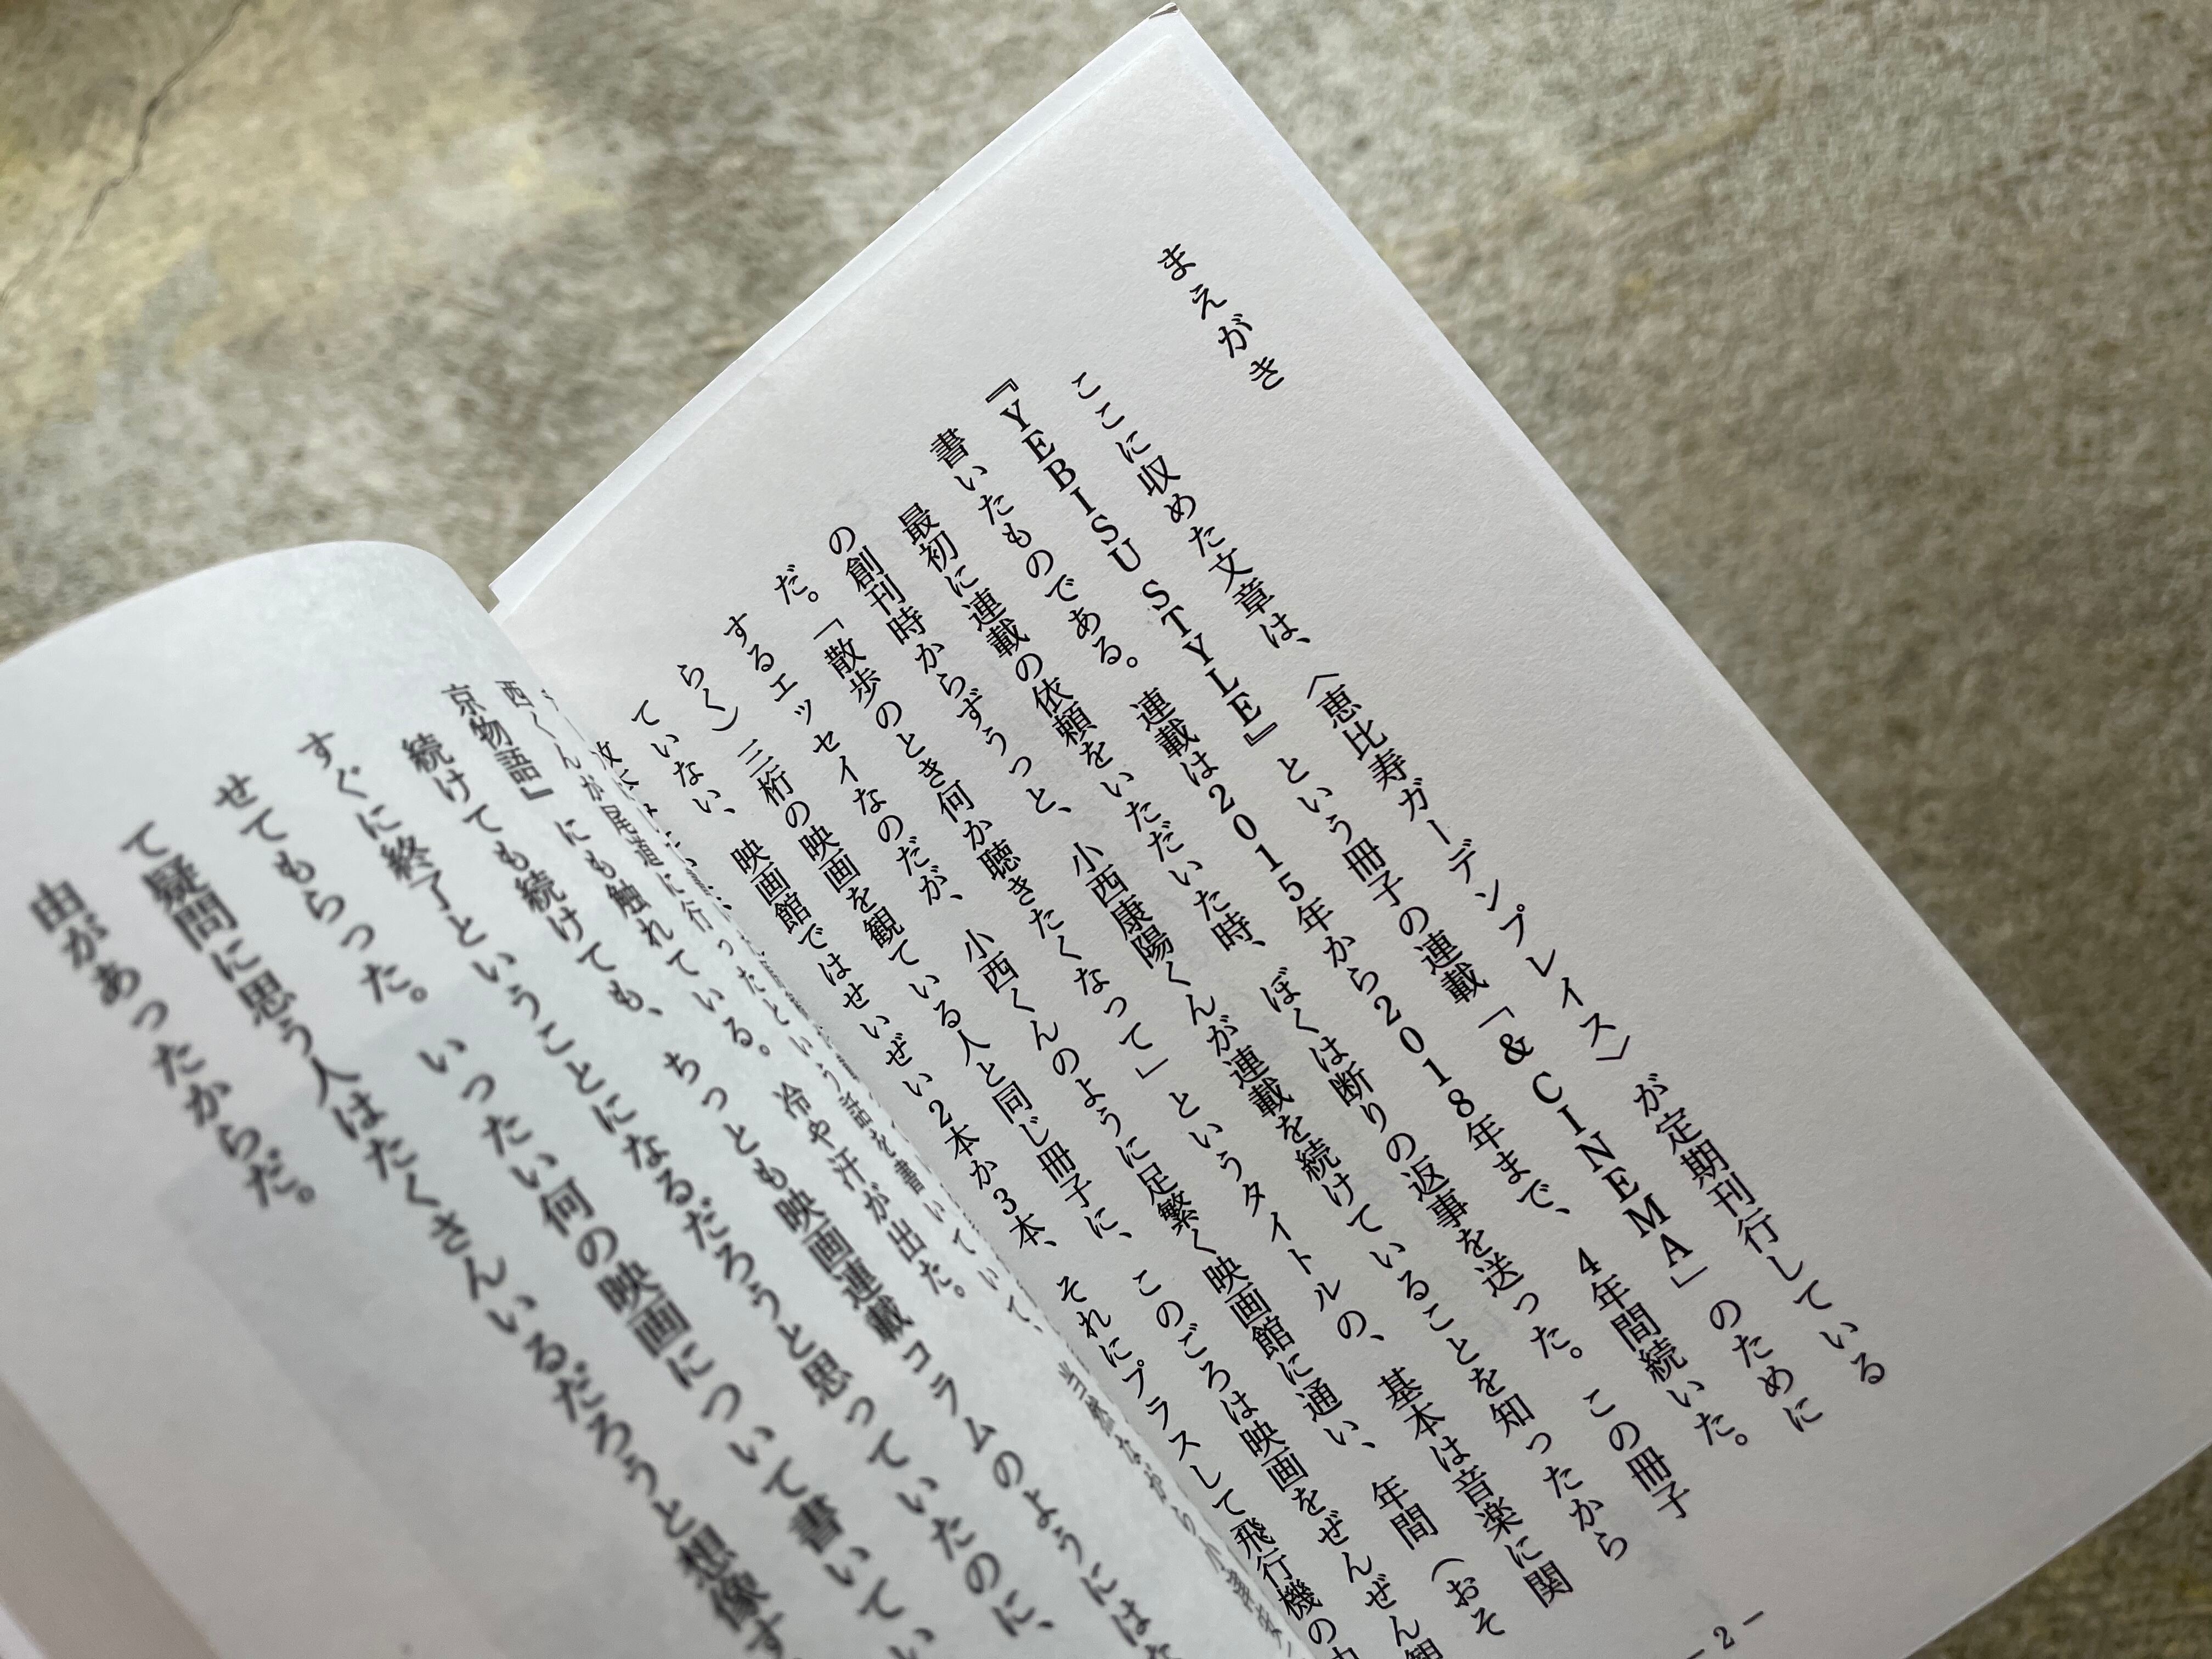 まえがき
ここに収めた文章は、〈恵比寿ガーデンプレイス〉が定期刊行している
『YEBISU STYLE』という冊子の連載「&CINEMA」のために
書いたものである。連載は2015年から2018年まで、4年間続いた。
最初に連載の依頼をいただいた時、ぼくは断りの返事を送った。この冊子
の創刊時からずうっと、小西康陽くんが連載を続けていることを知ったから
だ。「散歩のとき何か聴きたくなって」というタイトルの、基本は音楽に関
するエッセイなのだが、小西くんのように足繁く映画館に通い、年間（おそ
らく）三桁の映画を観ている人と同じ冊子に、このごろは映画をぜんぜん観
ていない、映画館ではせいぜい2本か3本、それにプラスして飛行機の
西くんが尾道に行ったという話を書いていて、当然ながら小
京物語』にも触れている。冷や汗が出た。
続けても続けても、ちっとも映画連載コラムのようには
すぐに終了ということになるだろうと思っていたのに、
せてもらった。いったい何の映画について書いてい
て疑問に思う人はたくさんいるだろうと想像す
由があったからだ。
－2－